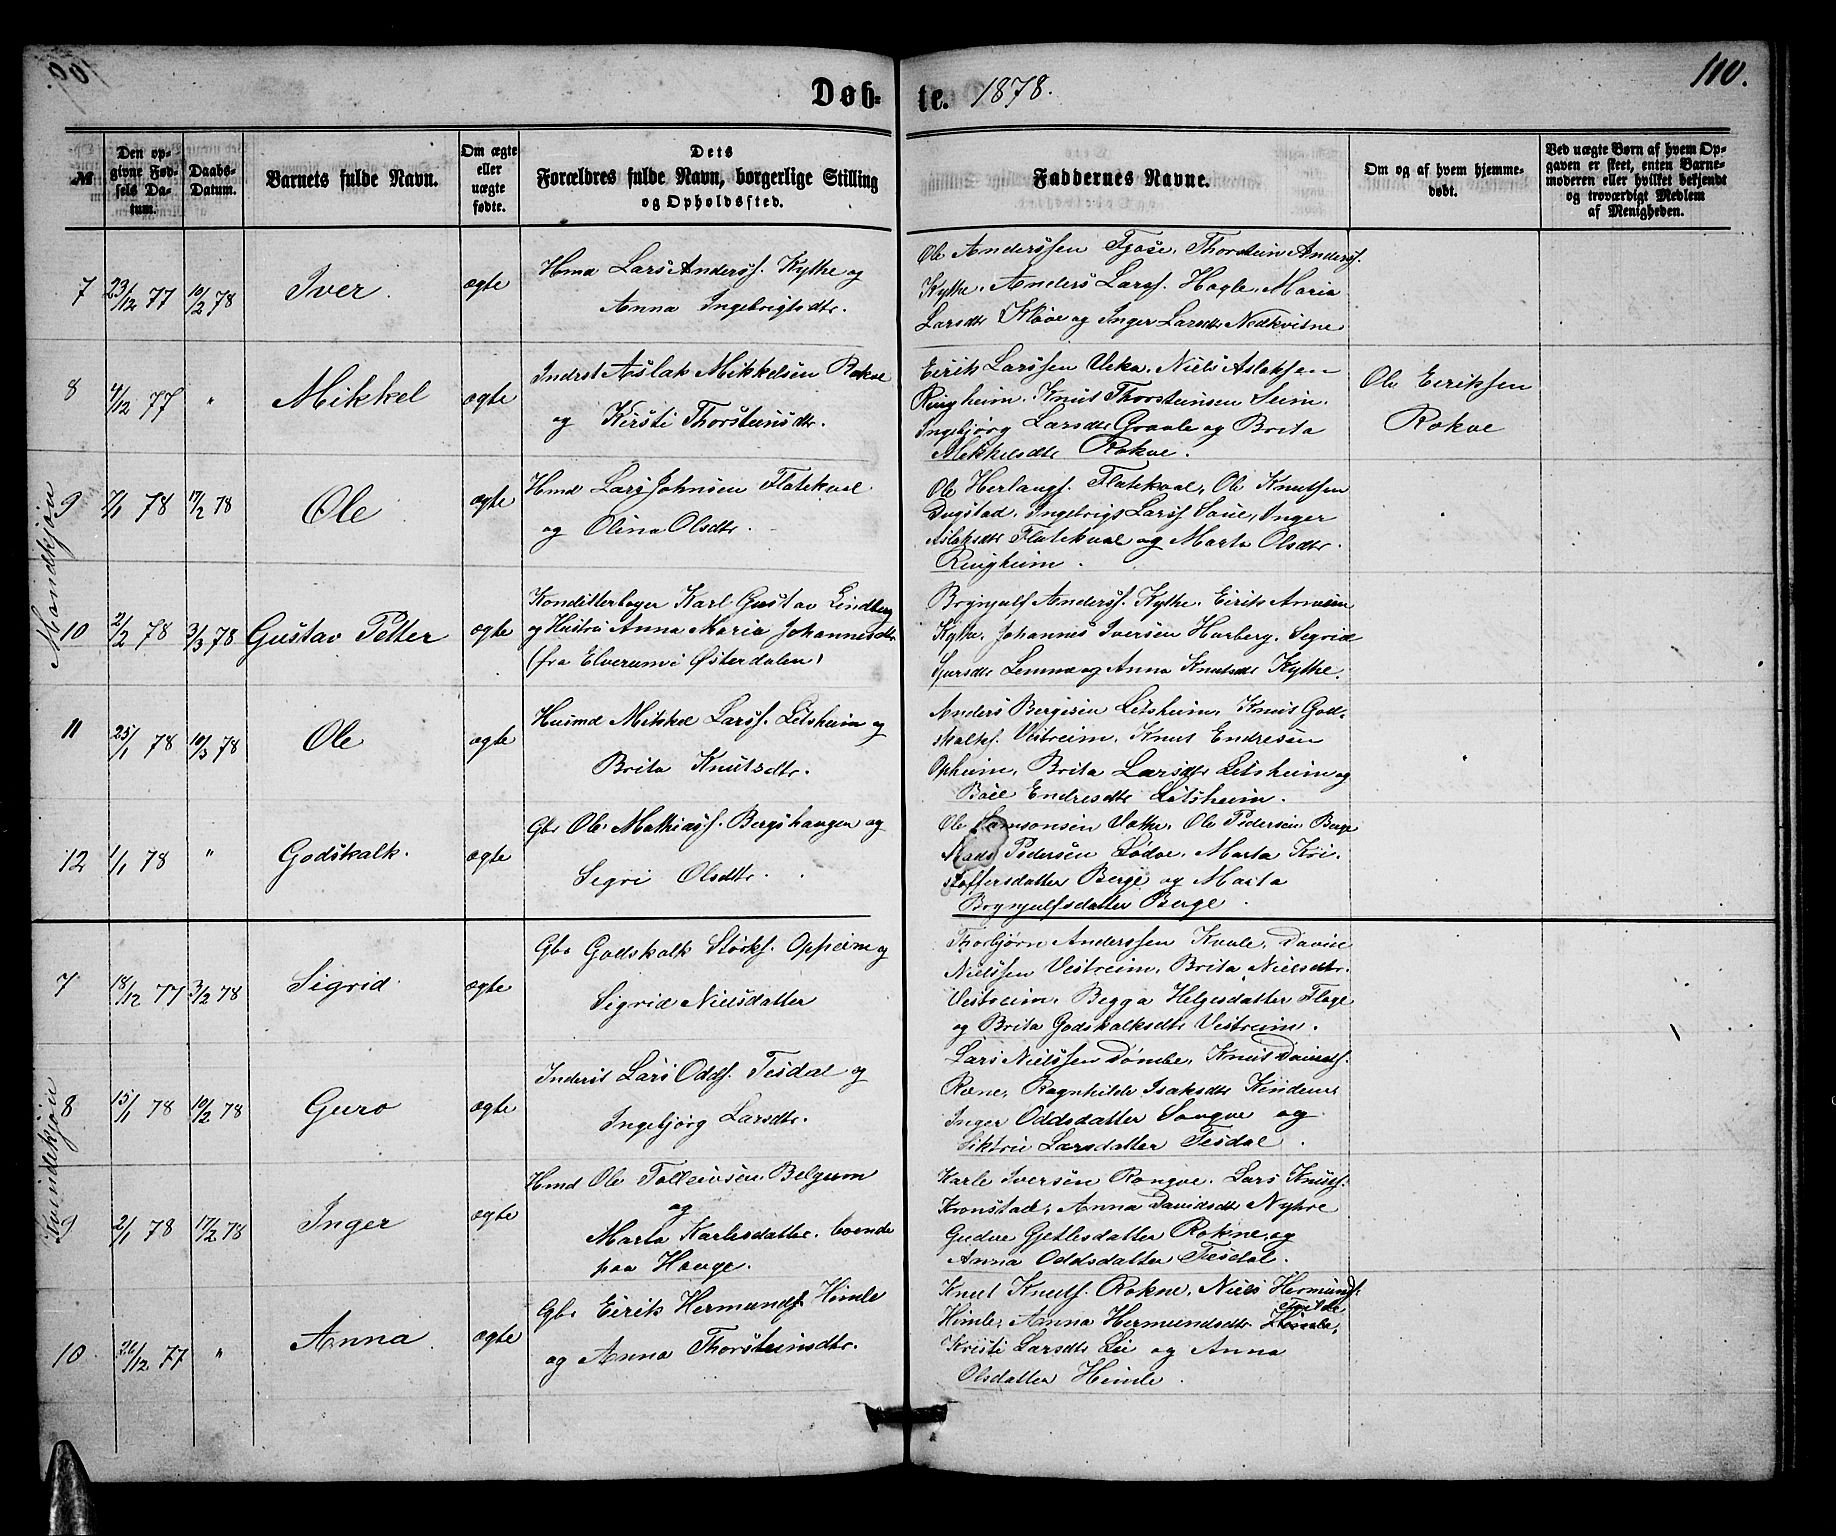 Døb-
te. 1878.
110.
№
Den op-
givne Fød-
sels Da-
tum.
Daabs-
Datum.
Barnets fulde Navn.
Om ægte
eller
uægte
fødte.
Dets
Forældres fulde Navn, borgerlige Stilling
og Opholdssted.
Faddernes Navne.
Om og af hvem hjemme-
døbt.
Ved uægte Børn af hvem Op-
gaven er skeet, enten Barne-
moderen eller hvilket bekjendt
og troværdigt Medlem
af Menigheden.
Mandkjøn
7 23/12 77 10/2 78 Iver. ægte
Hmd Lars Anderss. Kythe og
Anna Ingebrigtsdtr.
Ole Anderssen Gjose, Thorstein Anderss.
Kythe, Anders Larss. Hagle, Maria
Larsdtr Kløve og Inger Larsdtr Nedkvitne
8 4/12 77 " Mikkel ægte
Inderst Aslak Mikkelsen Rokve
og Kirsti Thorsteinsdtr.
Eirik Larssen Ueka, Niels Aslaksen
Ringheim, Knut Thorsteinsen Seim,
Ingebjørg Larsdtr Graule og Brita
Mikkelsdtr Rokve.
Ole Eiriksen
Rokve
9 7/1 78 17/2 78 Ole ægte
Hmd Lars Johnsen Flatekval
og Olina Olsdtr.
Ole Herlaugs. Flatekval, Ole Knutsen
Dugstad, Ingebrigt Larss. Saue, Inger
Aslaksdtr Flatekval og Marta Olsdtr.
Ringheim.
10 2/2 78 3/3 78 Gustav Petter ægte
Konditterbager Karl Gustav Lindberg
og Hustru Anna Maria Johannesdtr.
(fra Elverum i Østerdalen)
Brynjulf Anderss. Kythe, Eirik
Kythe, Johannes Iversen Horberg, Segrid
Sjursdtr Lemme og Anna Knutsdtr Kythe.
11 25/1 78 10/3 78 Ole ægte
Husmd Mikkel Larss. Lidsheim og
Brita Knutsdtr.
Anders Bergesen Lidsheim, Knut God-
skalks. Vestreim, Knut Endresen
Opheim, Brita Larsdtr Lidsheim og
Baæl Endresdtr Lidsheim.
12 1/1 78 " Godskalk. ægte
Gbr Ole Mathiass. Bergshaugen og
Segri Olsdtr.
Ole Samsonsen Vathe, Ole Pedersen Berge
Mads Pedersen Lødve, Marta Kri-
stoffersdatter Berge og Marta
Brynjulfsdatter Berge.
Kvindekjøn
7 18/12 77 3/2 78 Sigrid ægte
Gbr Godskalk Størks. Opheim og
Sigrid Nielsdatter
Thorbjørn Anderssen Kvale, David
Nielssen Vestreim, Brita Nielsdtr.
Vestreim, Begga Helgesdatter Flage
og Brita Godskalksdtr Vestreim.
8 15/1 78 10/2 78 Guro ægte
Inderst Lars Odds. Tesdal og
Ingebjørg Larsdtr.
Lars Nielssen Dømbe, Knut Davids.
Rene, Ragnhilda Isaksdtr Kinden,
Inger Oddsdatter Songve og
Siktru Larsdatter Tesdal.
9 2/1 78 17/2 78 Inger ægte
Hmd Ole Tolleivsen Belgum
og
Marta Karlesdatter, boende
paa Hauge.
Karle Iversen Rongve, Lars Knuts.
Kronstad, Anna Davidsdtr Nyhre
Gudve Gjetlesdatter Rokne og
Anna Oddsdatter Tesdal.
10 26/12 77 " Anna ægte
Gbr Eirik Hermunds. Himle
og Anna Thorsteinsdtr.
Knut Knuts. Rokne, Niels Hermunds.
Himle, Anna Hermundsdtr Himle,
Kristi Larsdtr Lie og Anna
Olsdatter Himle.